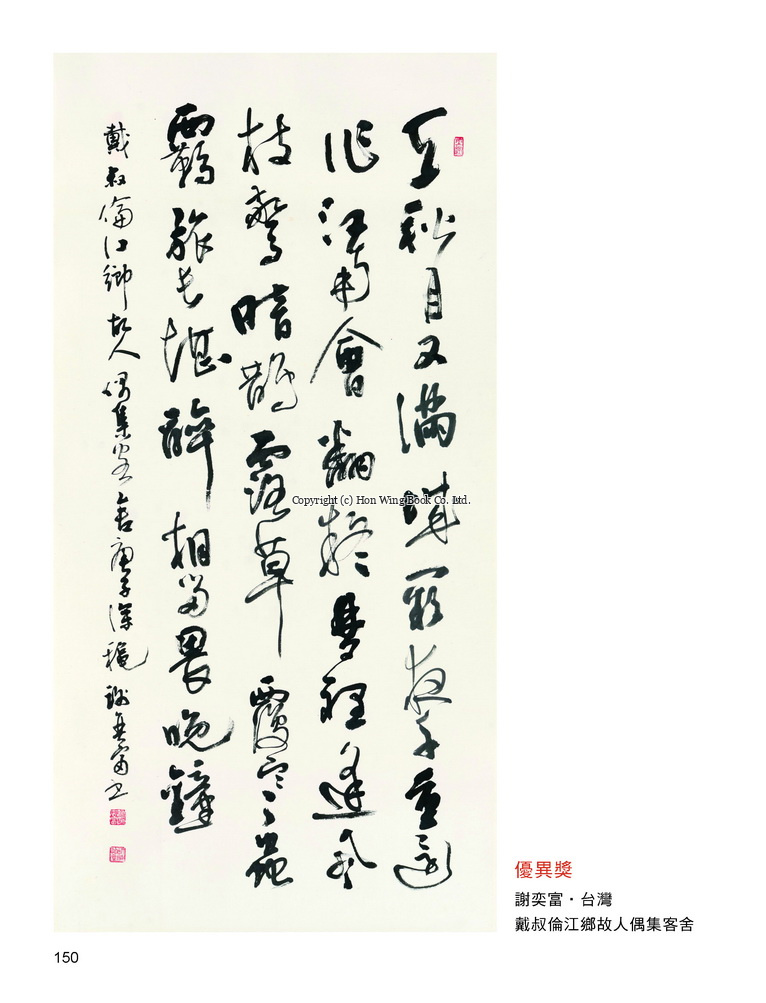 天秋月又滿城闕夜千重還
作江南會翻疑夢裡逢風
枝驚暗鵲露草覆寒蟲
羈旅長堪醉相留畏晚鐘
戴叔倫江鄉故人偶集客舍庚子深穐謝奕富書
Copyright (c) Hon Wing Book Co. Ltd.
優異獎
謝奕富・台灣
戴叔倫江鄉故人偶集客舍
150